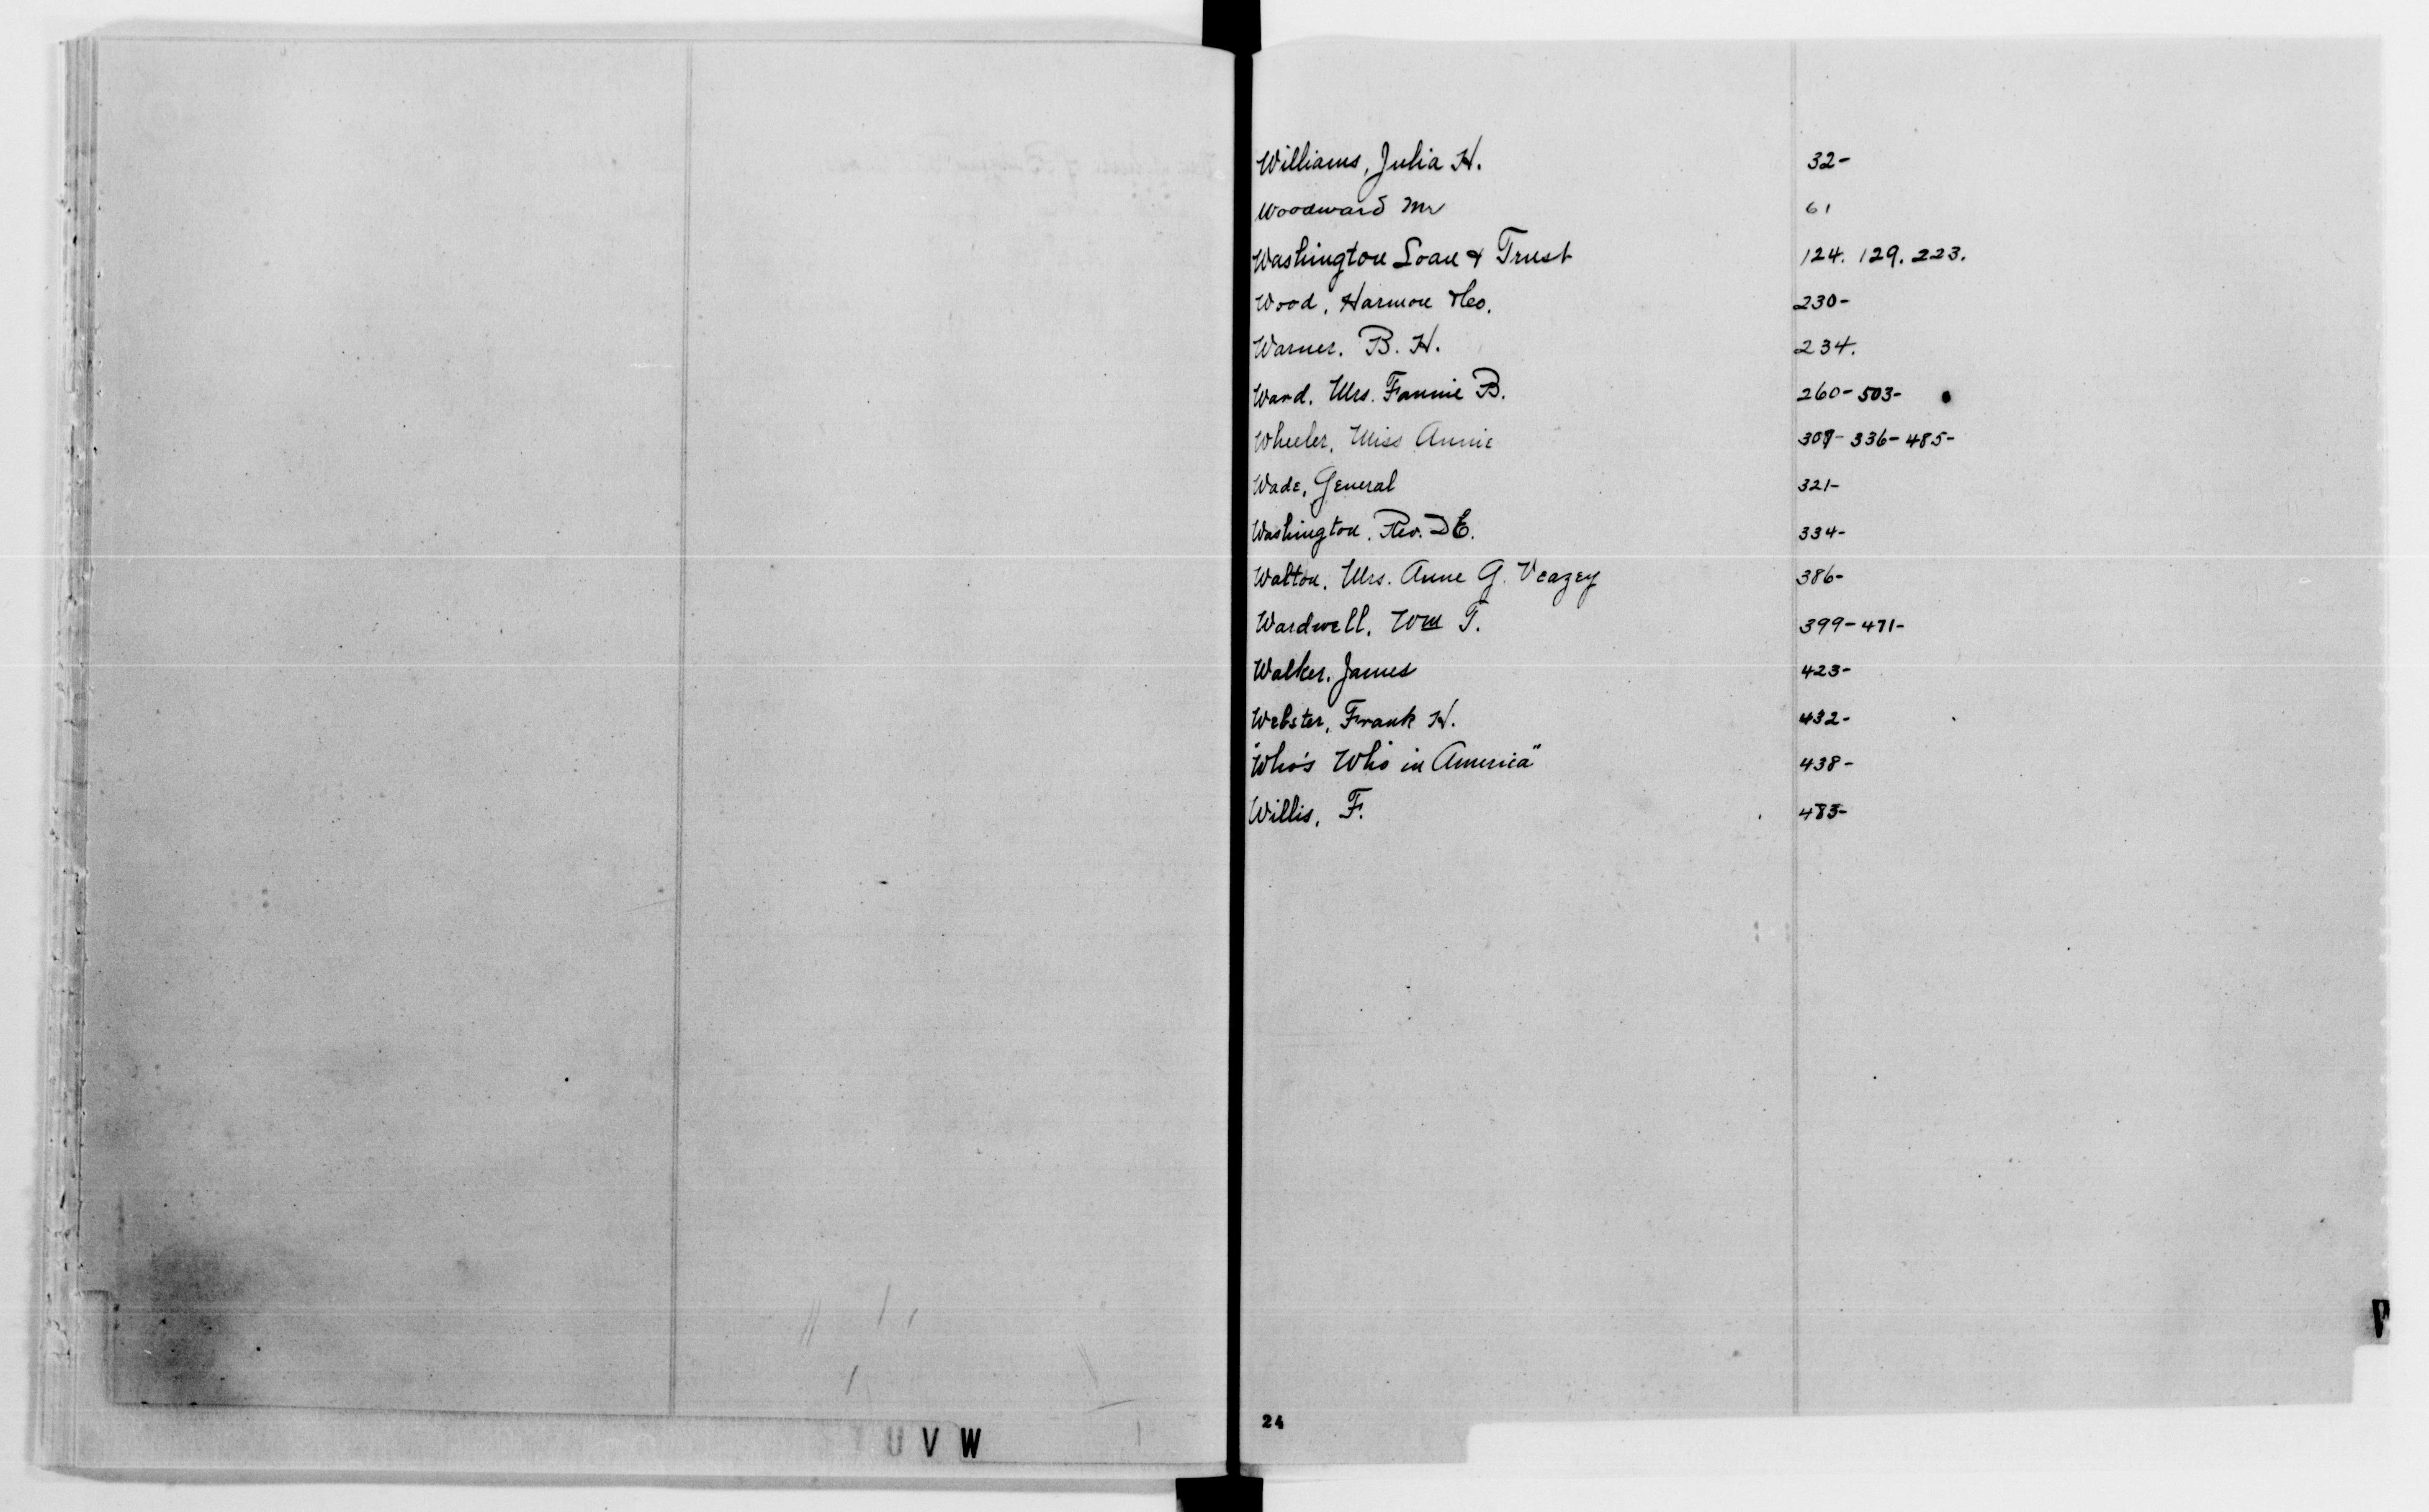 Williams, Julia H. 32-
Woodward Mr 61
Washington Loan & Trust 124. 129. 223.
Wood, Harmon 230-
Warner. B. H. 234.
Ward. Mrs. Fannie B. 260-503-
Wheeler, Miss Annie 307-336-485-
Wade, General 321-
Washington. Rev. D E. 334-
Walton. Mrs. Anne G. Veazey 386-
Wardwell, Wm T. 399-471-
Walker. James 423-
Webster, Frank H. 432-
"Who's Who in America" 438-
Willis, F. 483-
24
U V W